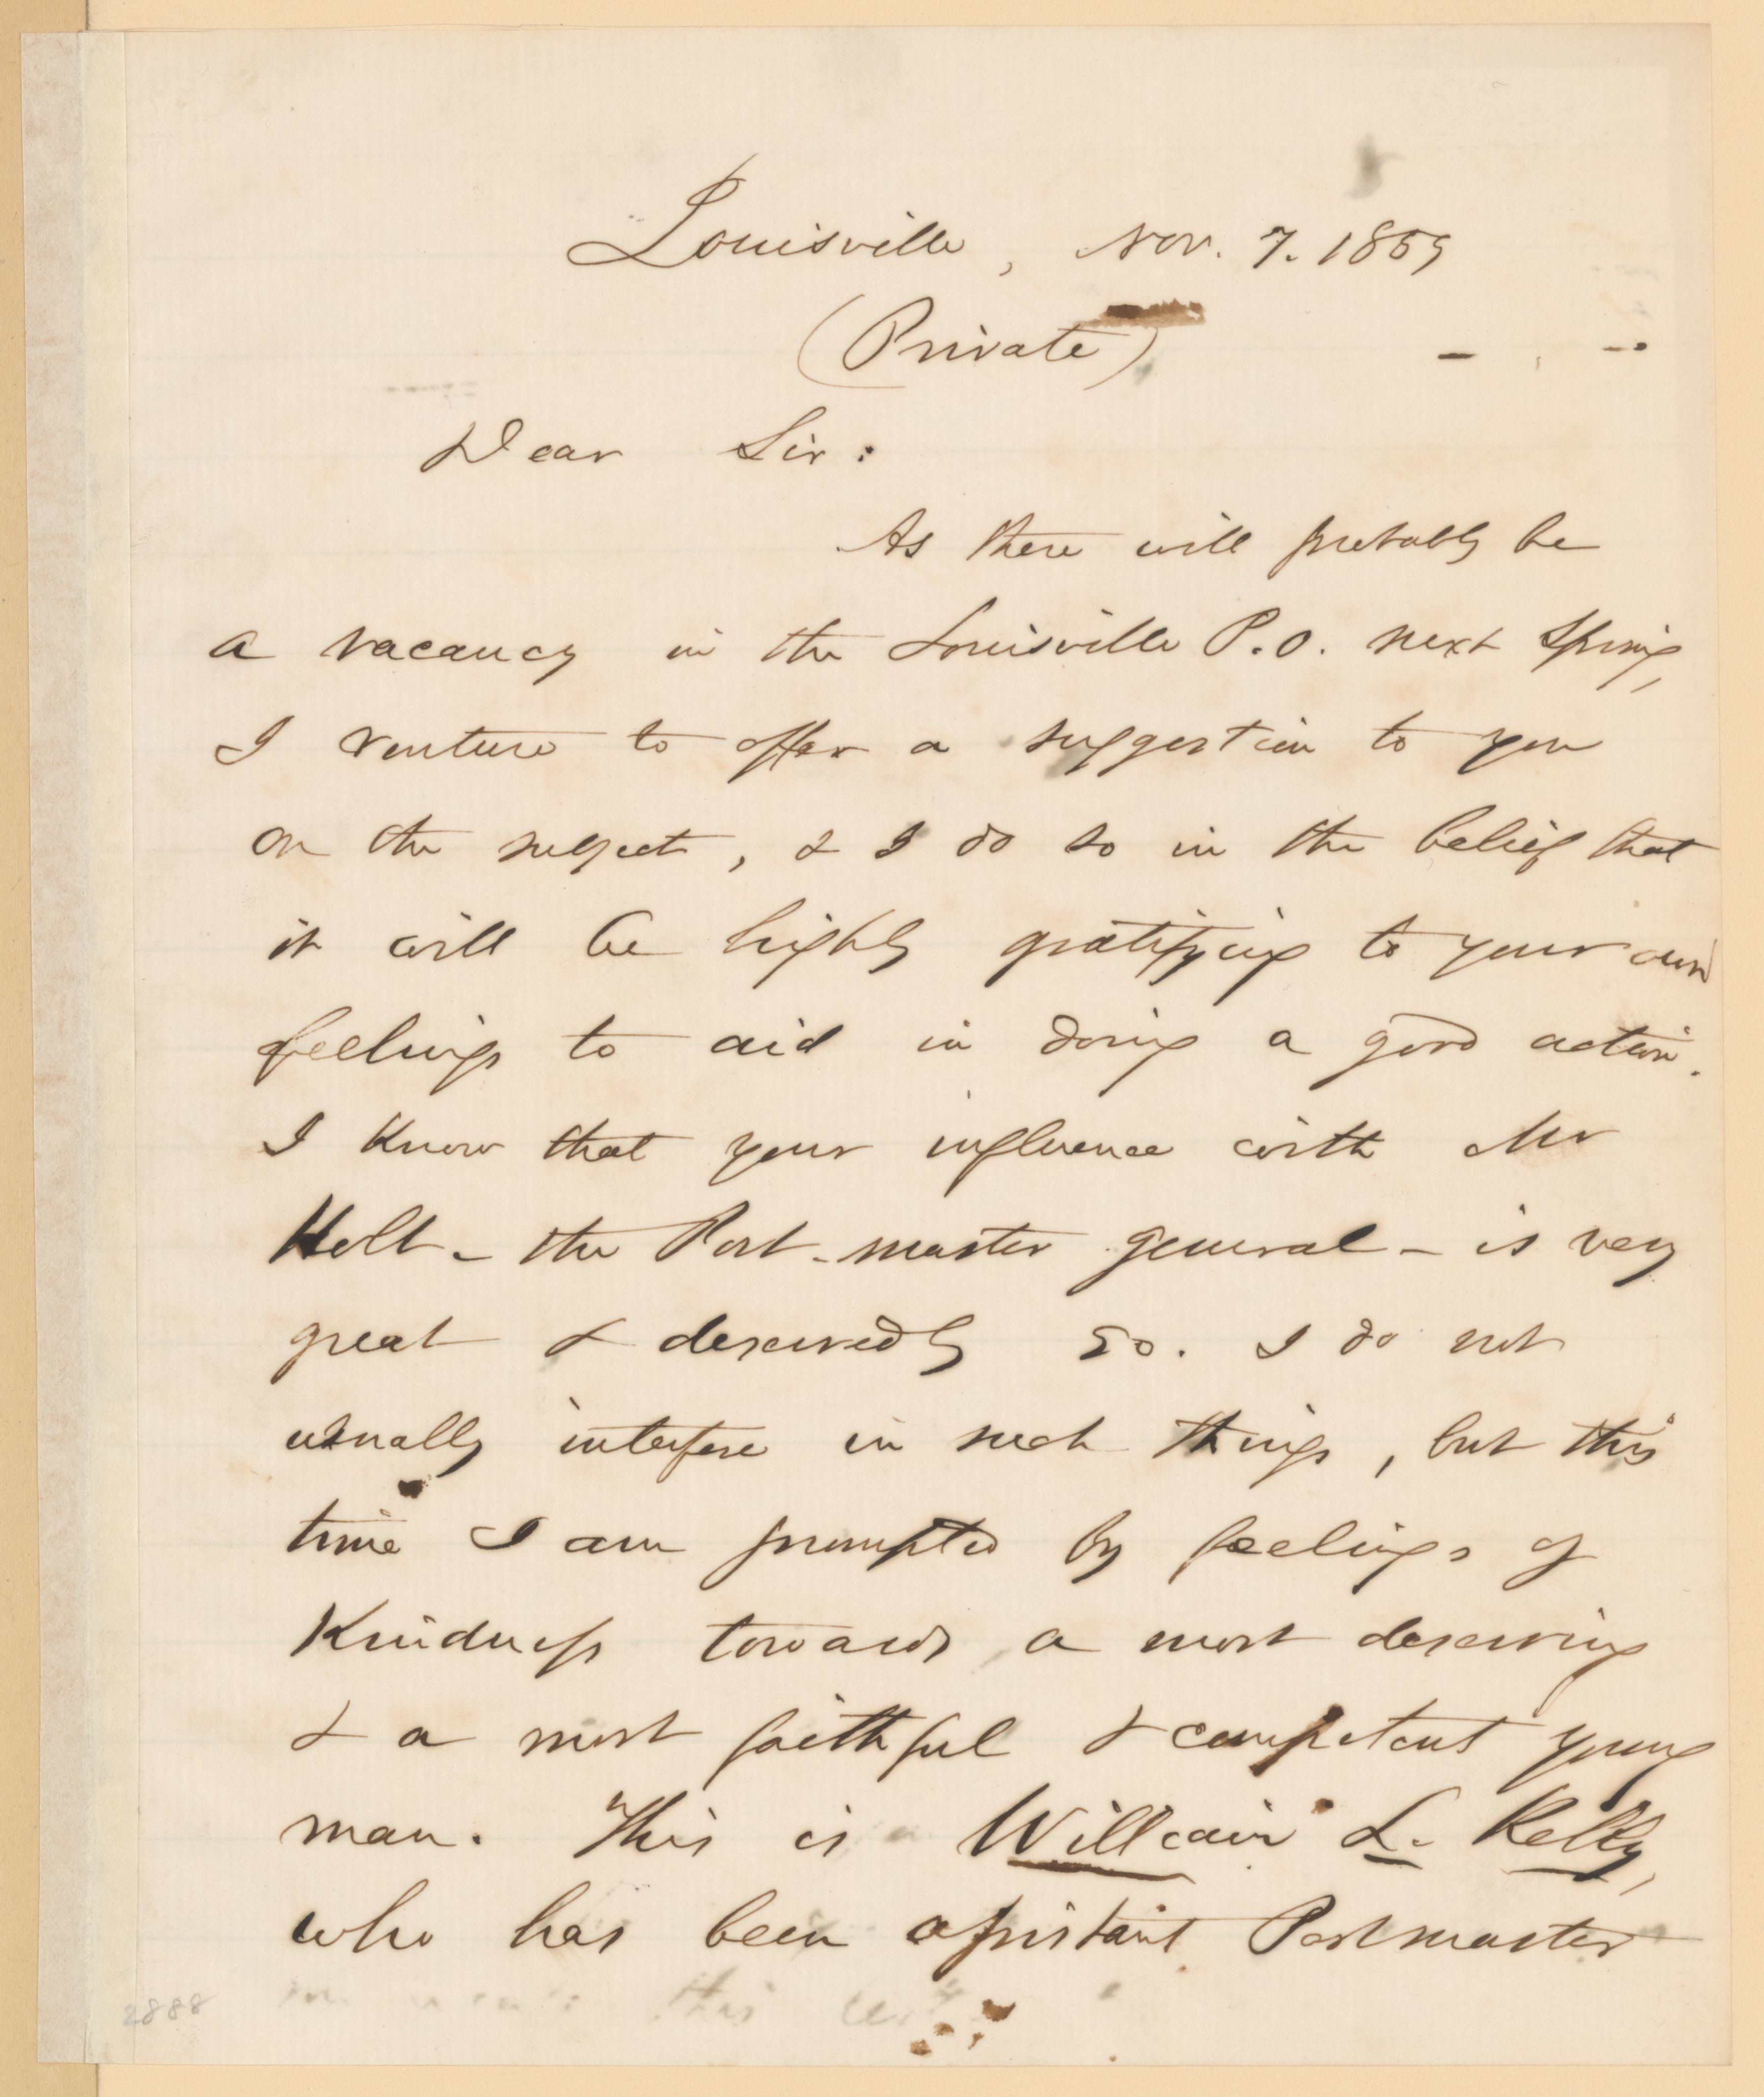 Louisville, Nov. 7. 1859
(Private)
Dear Sir:
As there will probably be
a vacancy in the Louisville P.O. next Spring,
I venture to offer a suggestion to you
on the subject, & I do so in the belief that
it will be highly gratifying to your own
feelings to aid in doing a good action.
I know that your influence with Mr
Holt - the Post-master general - is very
great & deservedly so. I do not
usually interfere in such things, but this
time I am prompted by feelings of
Kindness towards a most deserving
& a most faithful & competent young
man. This is William L. Kelly,
who has been assistant Postmaster
this
2888